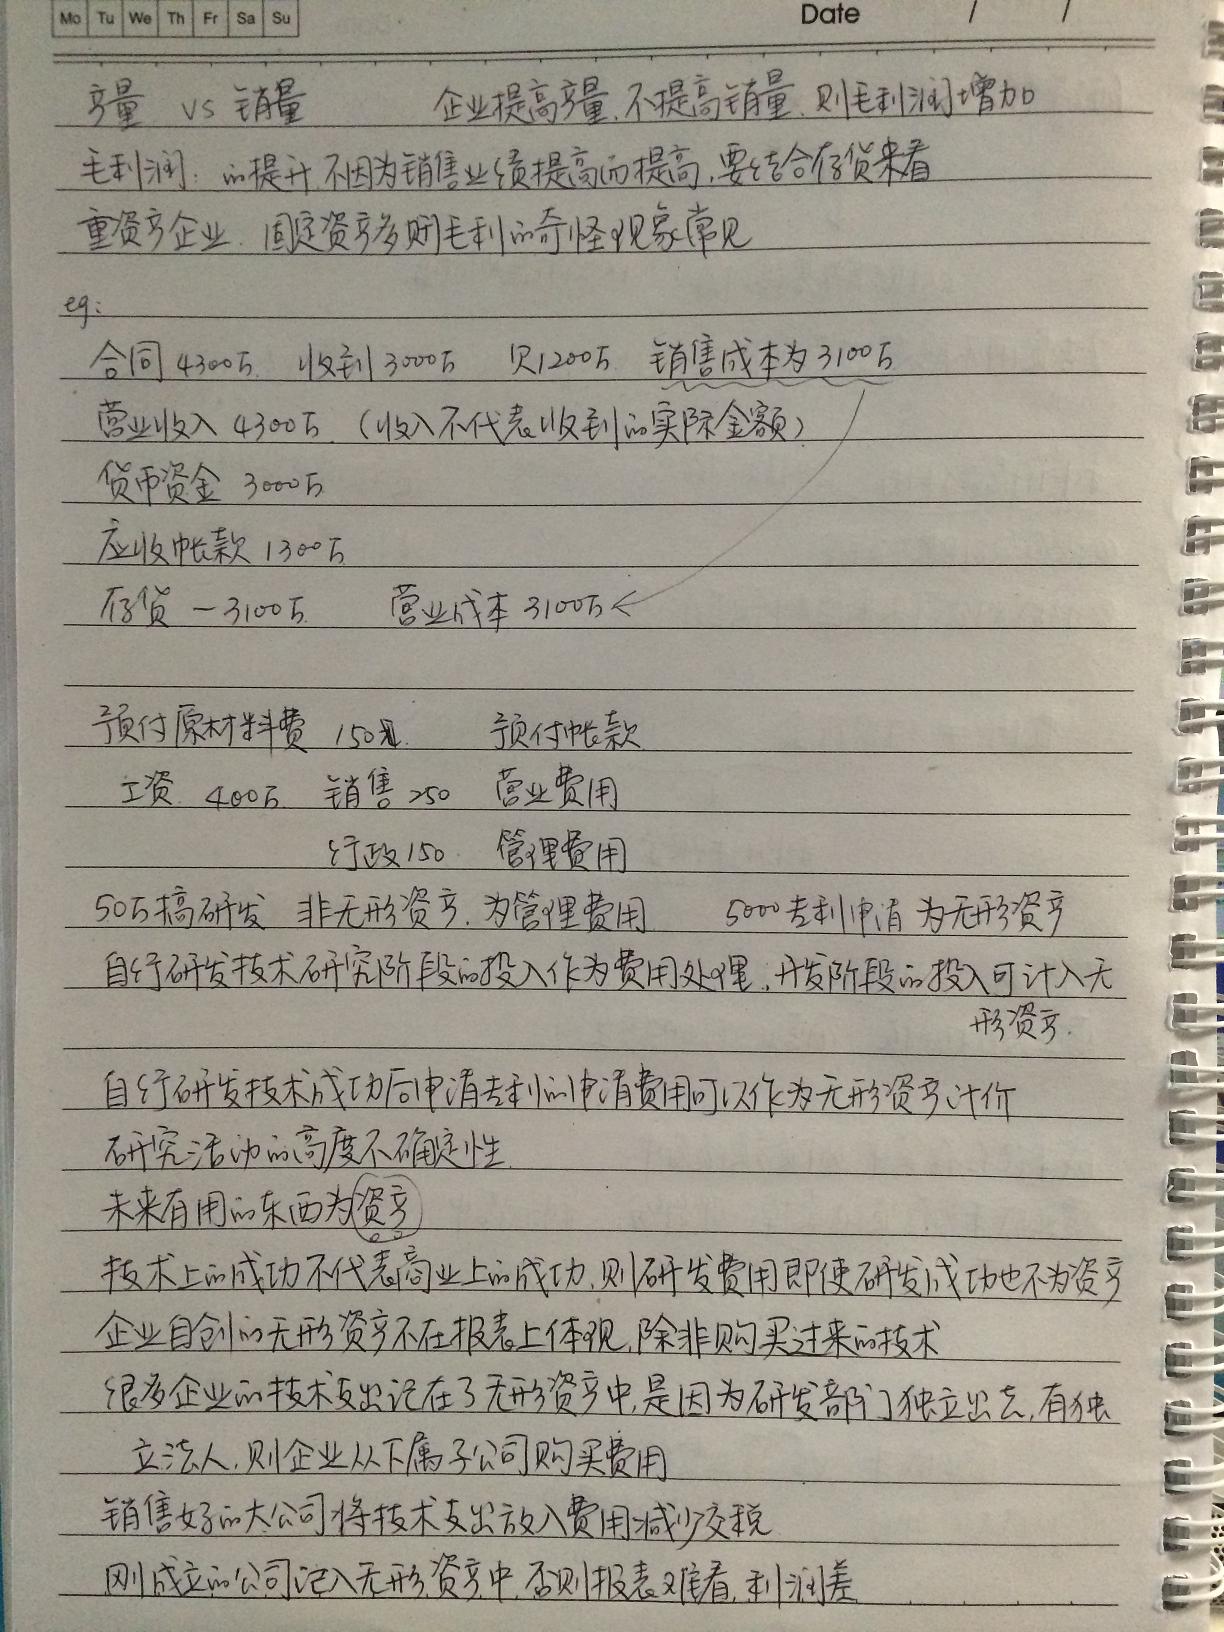 Mo Tu We Th Fr Sa Su Date / /
产量 VS 销量 企业提高产量,不提高销量,则毛利润增加
毛利润:的提升,不因为销售业绩提高而提高,要结合存货来看
重资产企业,固定资产多则毛利的奇怪现象常见
eg:
合同4300万 收到3000万 欠1200万 销售成本为3100万
营业收入 4300万 (收入不代表收到的实际金额)
货币资金 3000万
应收帐款 1300万
存货 -3100万 营业成本 3100万
预付原材料费 150万 预付帐款
工资 400万 销售250 营业费用
行政150 管理费用
50万搞研发 非无形资产,为管理费用 5000专利申请 为无形资产
自行研发技术研究阶段的投入作为费用处理,开发阶段的投入可计入无
形资产.
自行研发技术成功后申请专利的申请费用可以作为无形资产计价
研究活动的高度不确定性
未来有用的东西为资产
技术上的成功不代表商业上的成功,则研发费用即使研发成功也不为资产
企业自创的无形资产不在报表上体现,除非购买过来的技术
很多企业的技术支出记在了无形资产中,是因为研发部门独立出去,有独
立法人,则企业从下属子公司购买费用
销售好的大公司将技术支出放入费用减少交税
刚成立的公司记入无形资产中,否则报表难看,利润差